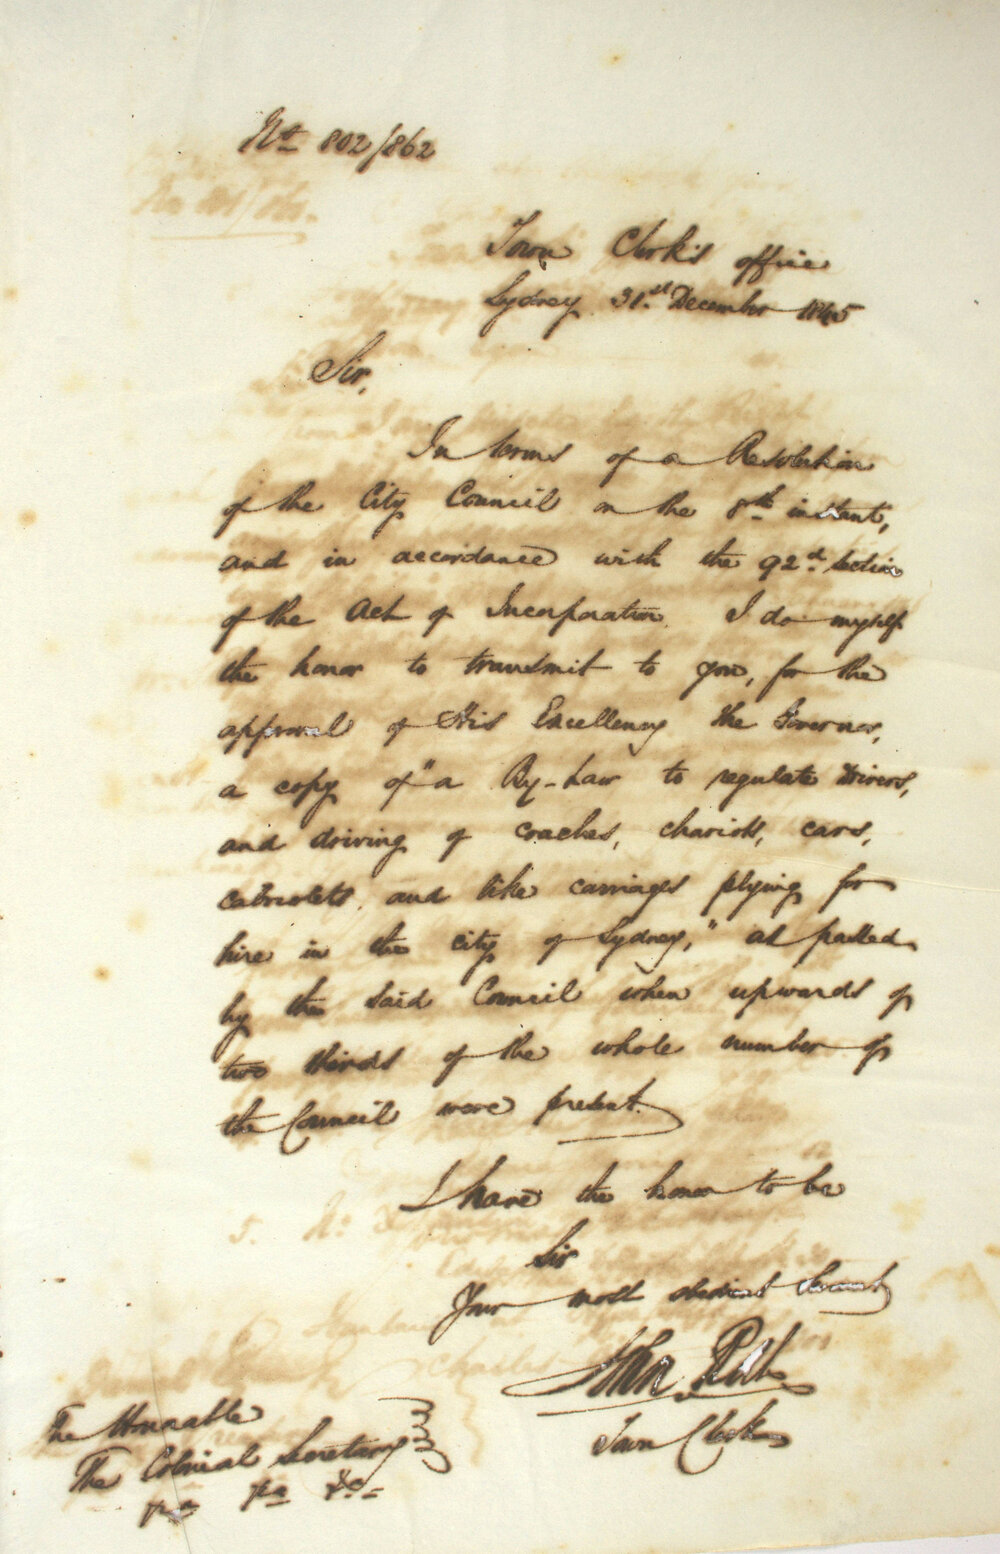 No. 802/862
Town Clerk's office
Sydney 31st December 1845
Sir,
In terms of a Resolution
of the City Council on the 8th instant,
and in accordance with the 92d. Section
of the Act of Incorporation I do myself
the honor to transmit to you, for the
approval of His Excellency the Governor,
a copy of "a By-Law to regulate Drivers,
and driving of coaches, chariots, cars,
cabriolets and like carriages plying for
hire in the city of Sydney," as passed
by the said Council when upwards of
two thirds of the whole number of
the Council were present.
I have the honor to be
Sir
Your most obedient Servant
John
Town Clerk
The Honorable
The Colonial Secretary
&c.